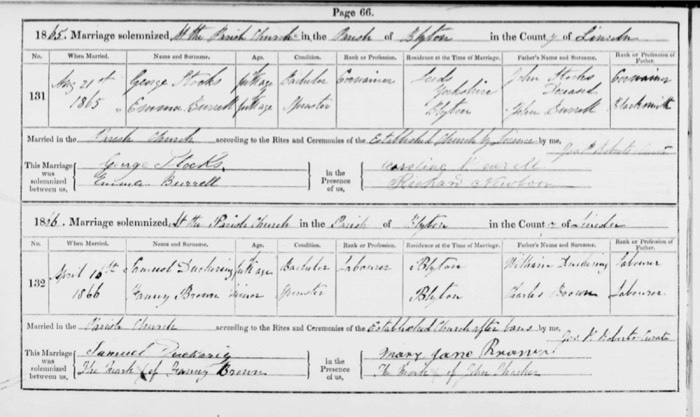 Page 66.
1865. Marriage solemnized At the Parish Church in the Parish of Blyton in the County of Lincoln
No. When Married. Name and Surname. Age. Condition. Rank or Profession. Residence at the Time of Marriage. Father's Name and Surname. Rank or Profession of Father.
131 Aug 21st 1865 George Stocks full age Bachelor Cordwainer Leeds Yorkshire John Stocks Deceased Cordwainer
Emma Burrett full age Spinster Blyton John Burrett Blacksmith
Married in the Parish Church according to the Rites and Ceremonies of the Established Church by Licence by me,
This Marriage was solemnized between us, George Stocks in the Presence of us, Caroline
Emma Burrett Richard Newborn
1866. Marriage solemnized At the Parish Church in the Parish of Blyton in the County of Lincoln
No. When Married. Name and Surname. Age. Condition. Rank or Profession. Residence at the Time of Marriage. Father's Name and Surname. Rank or Profession of Father.
132 April 1866 Samuel Duckering full age Bachelor Labourer Blyton William Duckering Labourer
Fanny Brown minor Spinster Blyton Charles Brown Labourer
Married in the Parish Church according to the Rites and Ceremonies of the Established Church after banns by me, Geo. Roberts Curate
This Marriage was solemnized between us, Samuel Duckering in the Presence of us, Mary Jane Brown
The Mark of Fanny Brown The Mark of John